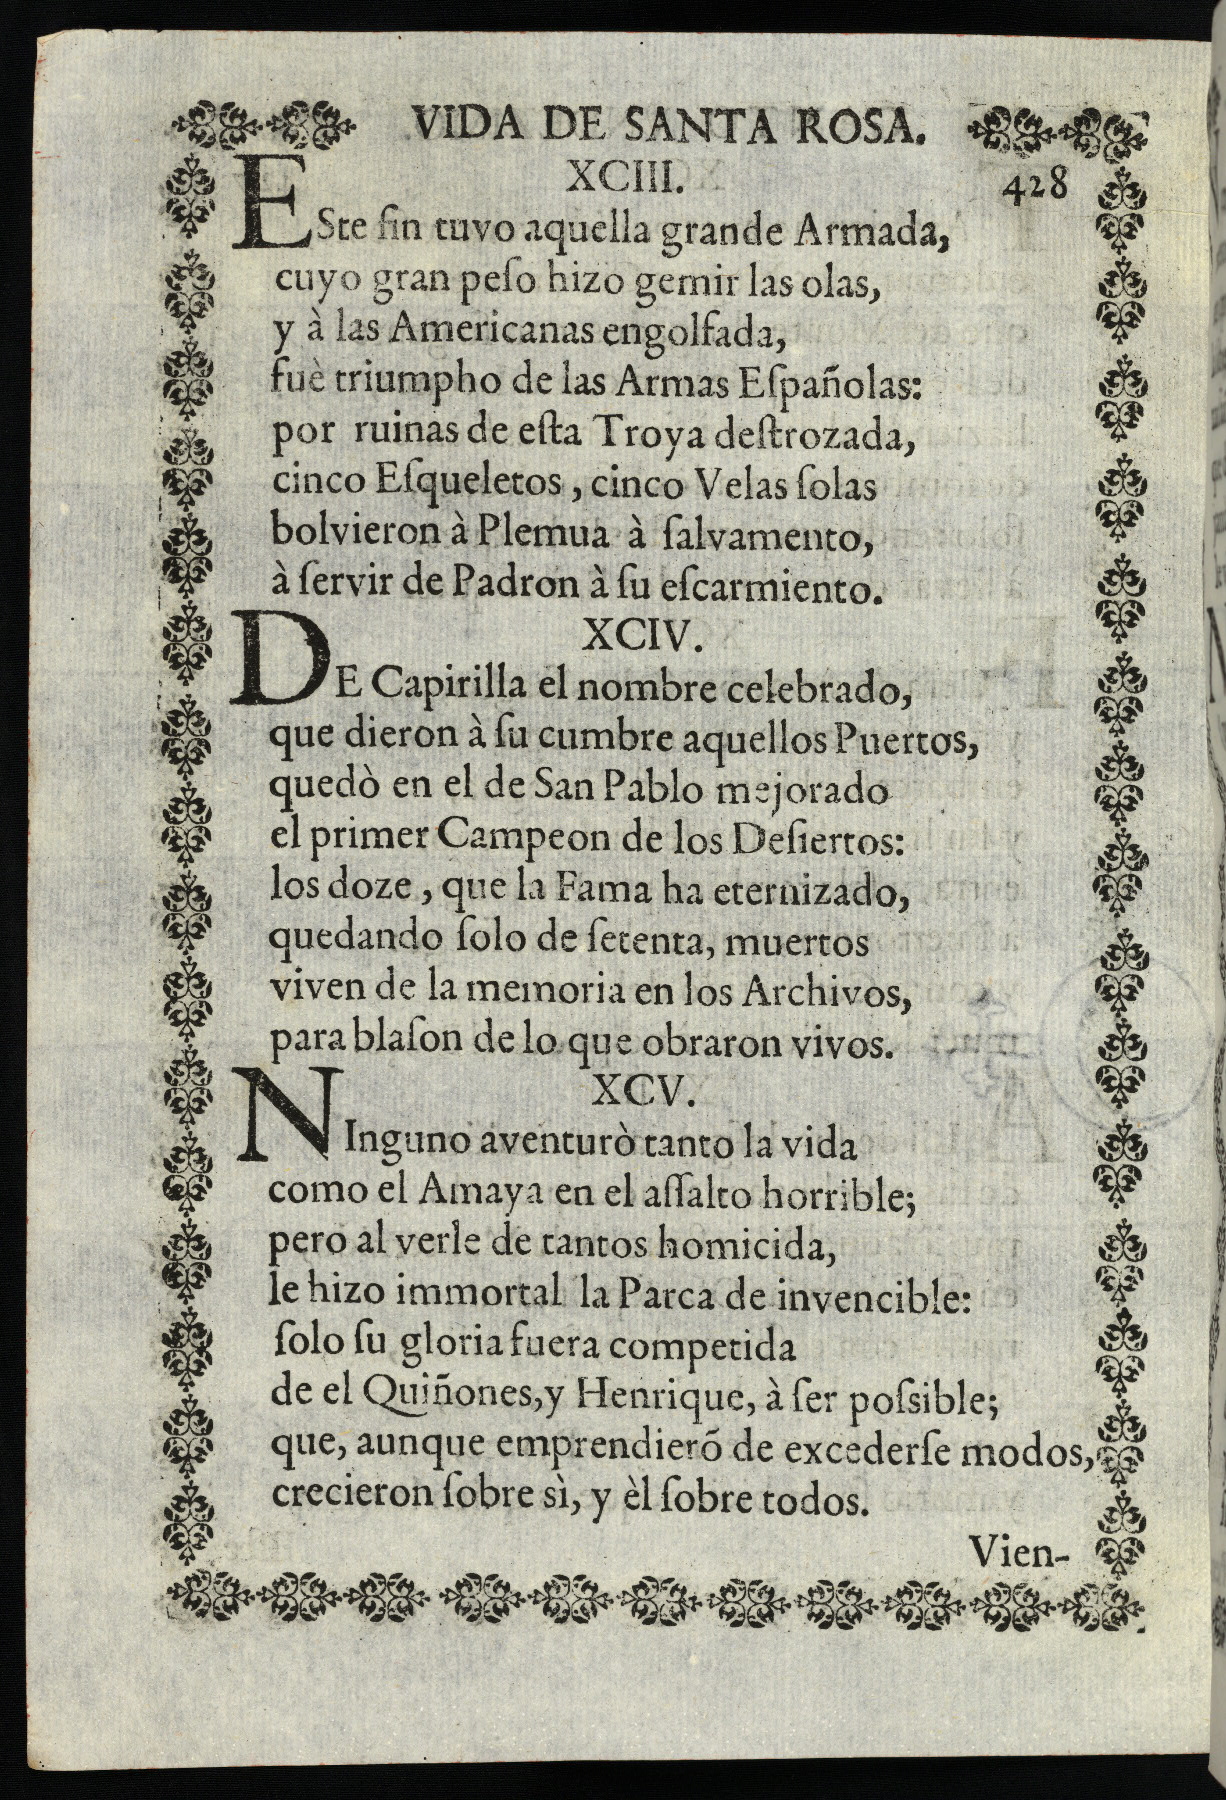 VIDA DE SANTA ROSA.
XCIII. 428
ESte fin tuvo aquella grande Armada,
cuyo gran peſo hizo gemir las olas,
y à las Americanas engolfada,
fuè triumpho de las Armas Eſpañolas:
por ruinas de eſta Troya deſtrozada,
cinco Eſqueletos, cinco Velas ſolas
bolvieron à Plemua à ſalvamento,
à ſervir de Padron à ſu eſcarmiento.
XCIV.
DE Capirilla el nombre celebrado,
que dieron à ſu cumbre aquellos Puertos,
quedò en el de San Pablo mejorado
el primer Campeon de los Deſiertos:
los doze, que la Fama ha eternizado,
quedando ſolo de ſetenta, muertos
viven de la memoria en los Archivos,
para blaſon de lo que obraron vivos.
XCV.
NInguno aventurò tanto la vida
como el Amaya en el aſſalto horrible;
pero al verle de tantos homicida,
le hizo immortal la Parca de invencible:
ſolo ſu gloria fuera competida
de el Quiñones, y Henrique, à ſer poſsible;
que, aunque emprendierõ de excederſe modos,
crecieron ſobre sì, y èl ſobre todos.
Vien-